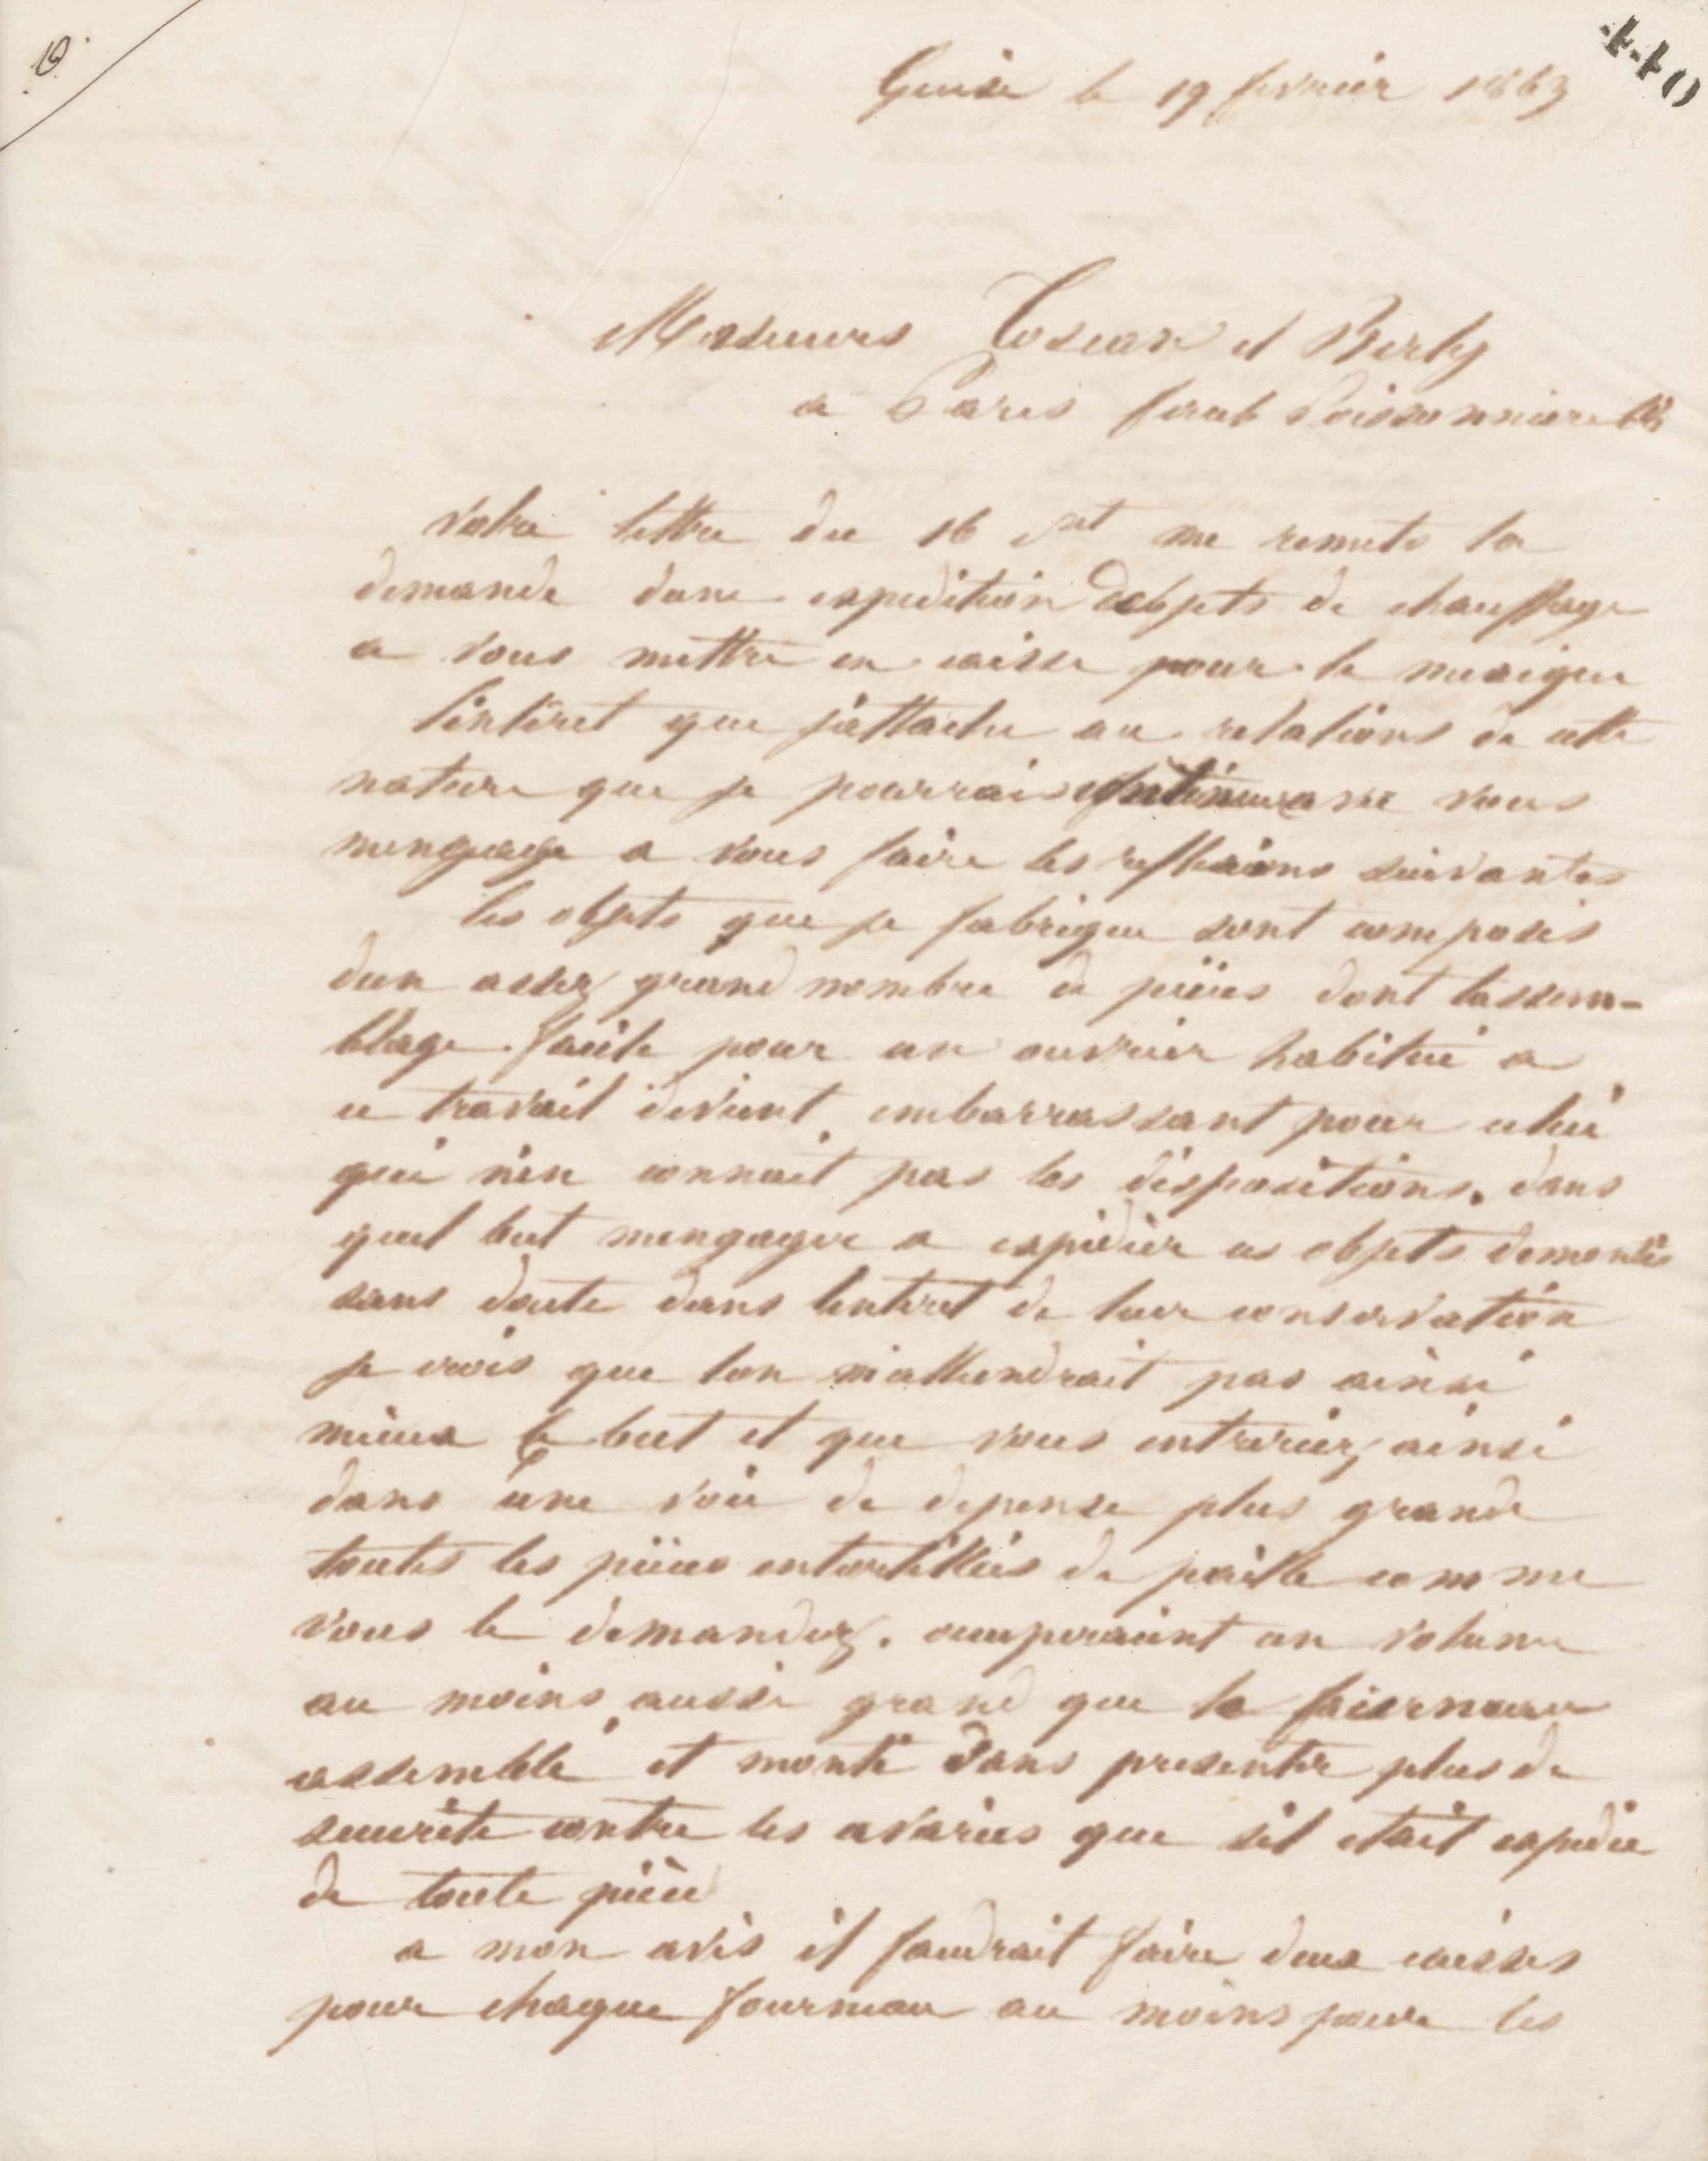 440
Guise le 19 fevrier 1863
Messieurs Toscan et Berly
a Paris faub Poissonniere
Votre lettre du 16 me remets la
demande dune expedition dobjets de chauffage
a vous mettre en caisse pour le mexique
l'intéret que j'attache au relations de cette
nature que je pourrais continuer avec vous
mengage a vous faire les reflexions suivantes
les objets que je fabrique sont composés
dun assez grand nombre de pièces dont lassem-
blage facile pour un ouvrier habitué a
ce travail devient embarrassant pour celui
qui n'en connait pas les dispositions. dans
quel but mengager a expédier ces objets démontés
sans doute dans lintéret de leur conservation
je crois que lon n'atteindrait pas ainsi
mieux le but et que vous entreriez ainsi
dans une voie de depense plus grande
toutes les pièces entortillées de paille comme
vous le demandez. occuperaient un volume
au moins aussi grand que le fourneau
assemblé et monté sans presenter plus de
securité contre les avaries que s'il était expedié
de toute pièce
a mon avis il faudrait faire deux caisses
pour chaque fourneau au moins pour les